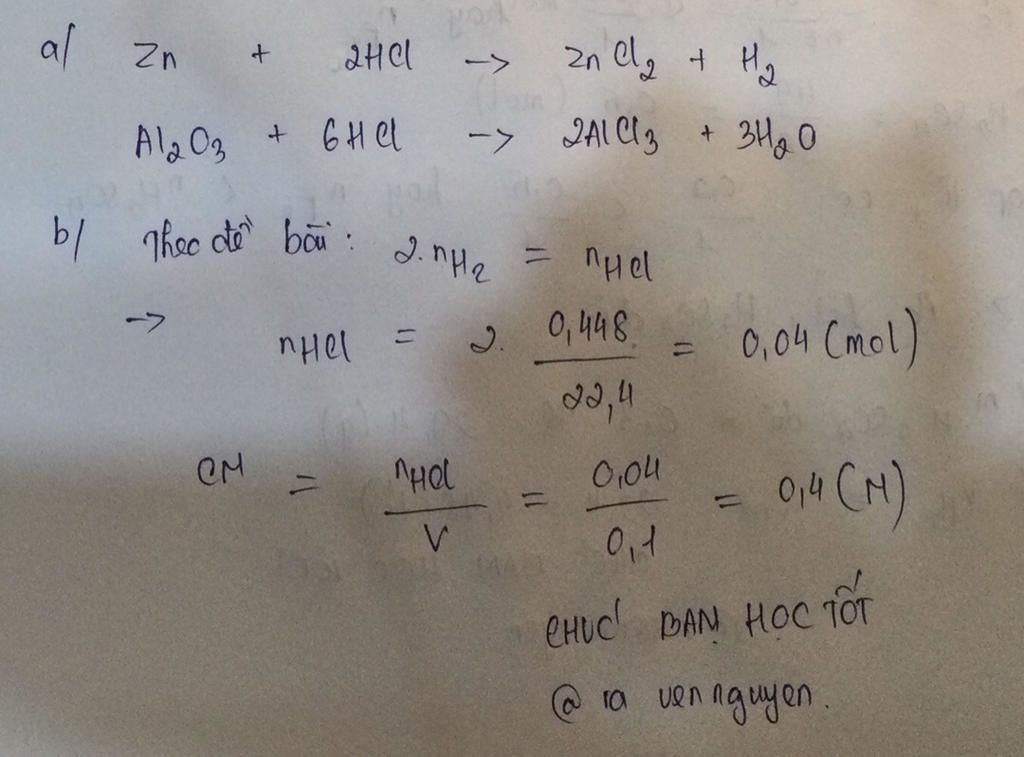 a/ Zn + 2HCl -> ZnCl2 + H2
Al2O3 + 6HCl -> 2AlCl3 + 3H2O
b/ Theo đề bài: 2.nH2 = nHCl
-> nHCl = 2. 0,448 / 22,4 = 0,04 (mol)
CM = nHCl / V = 0,04 / 0,1 = 0,4 (M)
CHÚC BẠN HỌC TỐT
@ ra vennguyen.